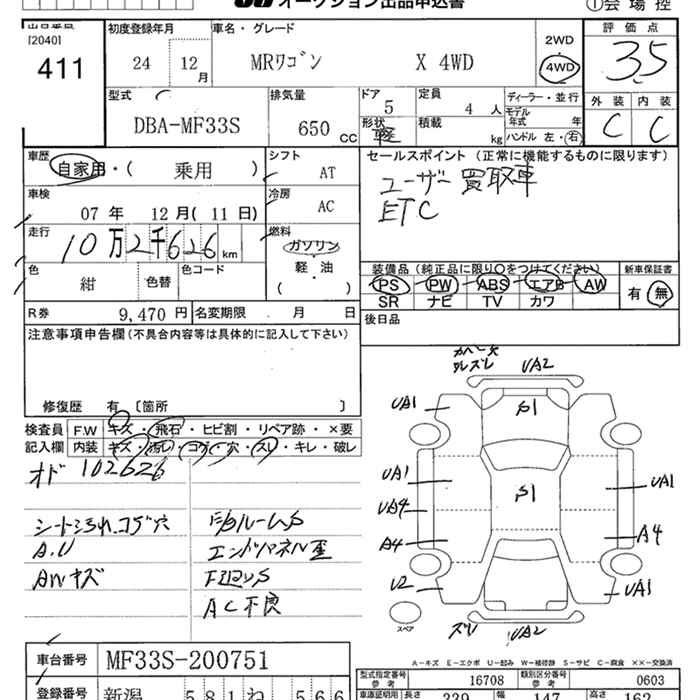 オークション出品申込書
①会場控
出品番号
[2040]
411
初度登録年月
24 12月
車名・グレード
MRワゴン X 4WD
2WD
4WD
評価点
3.5
型式
DBA-MF33S
排気量
650 cc
ドア 5
形状 軽
定員 4 人
積載 kg
ディーラー・並行
モデル年式 年
ハンドル 左・右
外装 内装
C C
車歴
自家用・( 乗用 )
シフト
AT
セールスポイント (正常に機能するものに限ります)
ユーザー買取車
ETC
車検
07 年 12 月( 11 日)
冷房
AC
走行
10万2千626 km
燃料
ガソリン
軽・油
( )
色
紺
色替
色コード
装備品 (純正品に限り○をつけてください)
PS PW ABS エアB AW
SR ナビ TV カワ
新車保証書
有・無
R券 9,470 円
名変期限 ・ 月 ・ 日
後日品
注意事項申告欄 (不具合内容等は具体的に記入して下さい)
修復歴 有 〔箇所 〕
検査員記入欄
F.W キズ・飛石・ヒビ割・リペア跡・×要
内装 キズ・汚レ・コゲ・穴・スレ・キレ・破レ
オド 102626
シート汚れ、コゲ穴
A.U
AWキズ
エンドパネル歪
AC不良
UA2
UA1
S1
UA1
S1
UA1
UA4
A4
A4
U2
UA1
スペア
ズレ
UA2
A-キズ E-エクボ U-凹み W-補修跡 S-サビ C-腐食 ××-交換済
車台番号 MF33S-200751
型式指定番号 参考 16708
類別区分番号 参考 0603
登録番号 新潟 581 ね 566
車庫証明用 長さ 339 幅 147 高さ 162